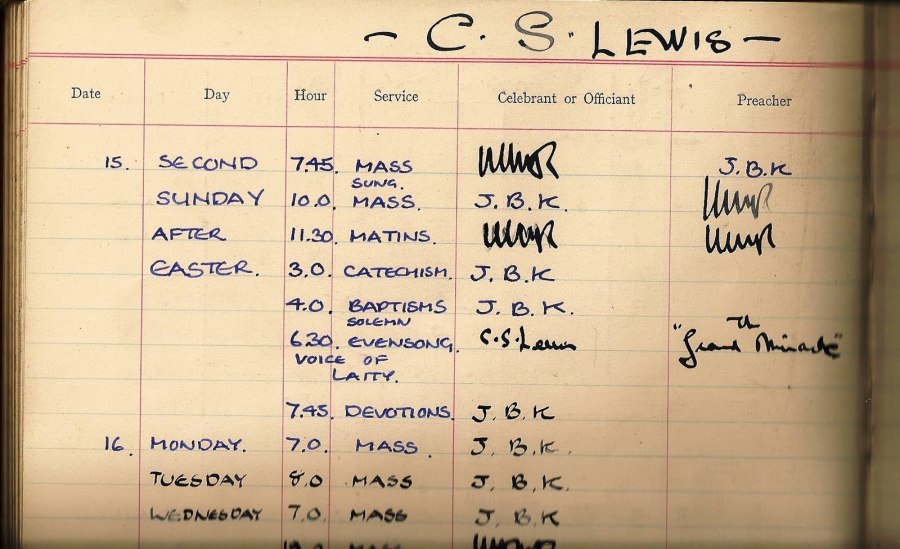 - C. S. LEWIS -
Date Day Hour Service Celebrant or Officiant Preacher
15. SECOND 7.45. MASS J.B.K
SUNG.
SUNDAY 10.0. MASS. J.B.K.
AFTER 11.30. MATINS.
EASTER. 3.0. CATECHISM. J.B.K
4.0. BAPTISMS J.B.K.
SOLEMN
6.30. EVENSONG. C.S. Lewis "The Grand Miracle"
VOICE OF
LAITY.
7.45. DEVOTIONS. J.B.K
16. MONDAY. 7.0. MASS. J.B.K.
TUESDAY 8.0 MASS J.B.K.
WEDNESDAY 7.0. MASS J.B.K